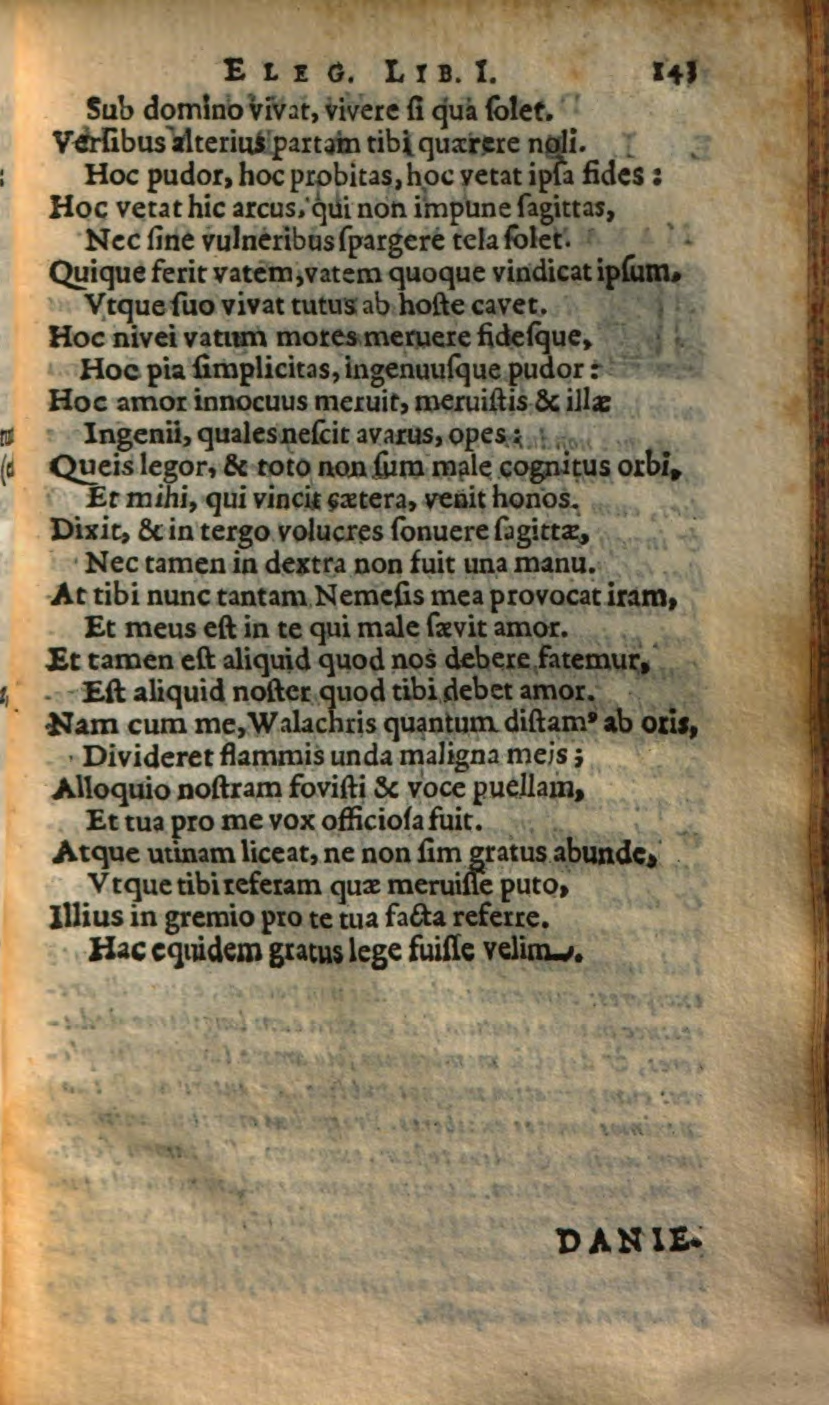 ELEG. LIB. I. 143
Sub domino vivat, vivere ſi qua ſolet.
Verſibus alterius partam tibi quærere noli.
Hoc pudor, hoc probitas, hoc vetat ipſa fides :
Hoc vetat hic arcus, qui non impune ſagittas,
Nec ſine vulneribus ſpargere tela ſolet.
Quique ferit vatem, vatem quoque vindicat ipſum.
Vtque ſuo vivat tutus ab hoſte cavet.
Hoc nivei vatum mores meruere fideſque,
Hoc pia ſimplicitas, ingenuuſque pudor :
Hoc amor innocuus meruit, meruiſtis & illæ
Ingenii, quales neſcit avarus, opes :
Queis legor, & toto non ſum male cognitus orbi,
Et mihi, qui vincit cætera, venit honos.
Dixit, & in tergo volucres ſonuere ſagittæ,
Nec tamen in dextra non fuit una manu.
At tibi nunc tantam Nemeſis mea provocat iram,
Et meus eſt in te qui male ſævit amor.
Et tamen eſt aliquid quod nos debere fatemur,
Eſt aliquid noſter quod tibi debet amor.
Nam cum me, Walachris quantum diſtamꝰ ab oris,
Divideret flammis unda maligna meis ;
Alloquio noſtram foviſti & voce puellam,
Et tua pro me vox officioſa fuit.
Atque utinam liceat, ne non ſim gratus abunde,
Vtque tibi referam quæ meruiſſe puto,
Illius in gremio pro te tua facta referre.
Hac equidem gratus lege fuiſſe velim.
DANIE-